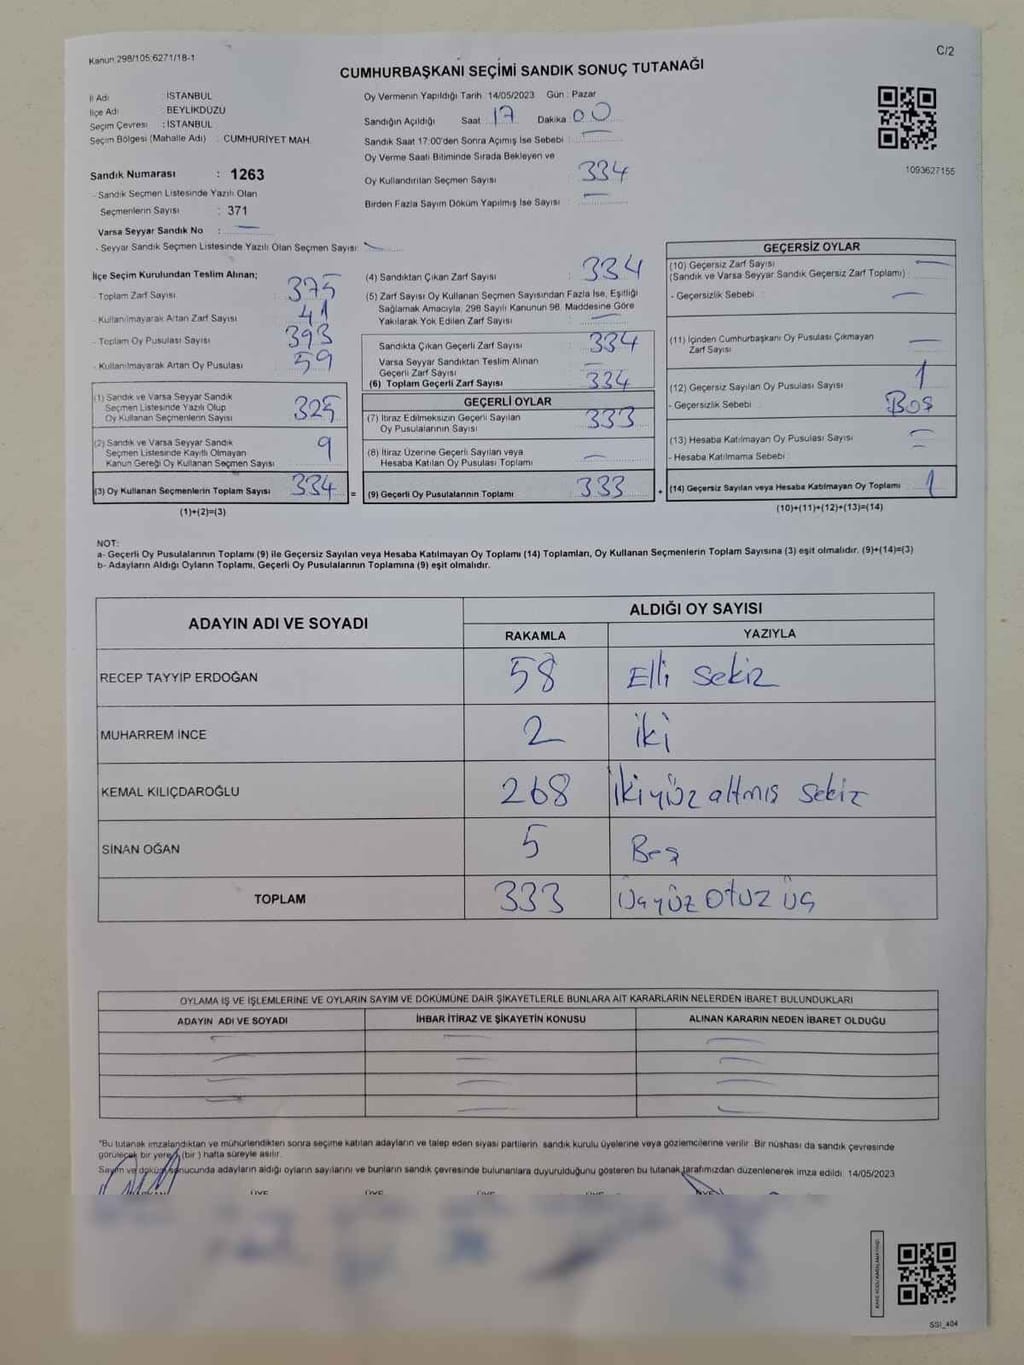 Kanun 298/105 6271/18-1
C/2
CUMHURBAŞKANI SEÇİMİ SANDIK SONUÇ TUTANAĞI
İl Adı : İSTANBUL
İlçe Adı : BEYLİKDÜZÜ
Seçim Çevresi : İSTANBUL
Seçim Bölgesi (Mahalle Adı) : CUMHURİYET MAH.
Sandık Numarası : 1263
- Sandık Seçmen Listesinde Yazılı Olan
Seçmenlerin Sayısı : 371
Varsa Seyyar Sandık No : —
- Seyyar Sandık Seçmen Listesinde Yazılı Olan Seçmen Sayısı:
Oy Vermenin Yapıldığı Tarih 14/05/2023 Gün : Pazar
Sandığın Açıldığı Saat : 17 Dakika 00
Sandık Saat 17:00'den Sonra Açımış İse Sebebi : —
Oy Verme Saati Bitiminde Sırada Bekleyen ve
Oy Kullandırılan Seçmen Sayısı : 334
Birden Fazla Sayım Döküm Yapılmış İse Sayısı : —
1093627155
İlçe Seçim Kurulundan Teslim Alınan;
- Toplam Zarf Sayısı 375
- Kullanılmayarak Artan Zarf Sayısı 41
- Toplam Oy Pusulası Sayısı 393
- Kullanılmayarak Artan Oy Pusulası 59
(1) Sandık ve Varsa Seyyar Sandık
Seçmen Listesinde Yazılı Olup
Oy Kullanan Seçmenlerin Sayısı 325
(2) Sandık ve Varsa Seyyar Sandık
Seçmen Listesinde Kayıtlı Olmayan
Kanun Gereği Oy Kullanan Seçmen Sayısı 9
(3) Oy Kullanan Seçmenlerin Toplam Sayısı 334 =
(1)+(2)=(3)
(4) Sandıktan Çıkan Zarf Sayısı : 334
(5) Zarf Sayısı Oy Kullanan Seçmen Sayısından Fazla İse, Eşitliği
Sağlamak Amacıyla, 298 Sayılı Kanunun 98. Maddesine Göre
Yakılarak Yok Edilen Zarf Sayısı : —
Sandıkta Çıkan Geçerli Zarf Sayısı : 334
Varsa Seyyar Sandıktan Teslim Alınan
Geçerli Zarf Sayısı
(6) Toplam Geçerli Zarf Sayısı : 334
GEÇERLİ OYLAR
(7) İtiraz Edilmeksizin Geçerli Sayılan
Oy Pusulalarının Sayısı : 333
(8) İtiraz Üzerine Geçerli Sayılan veya
Hesaba Katılan Oy Pusulası Toplamı : —
(9) Geçerli Oy Pusulalarının Toplamı : 333 +
GEÇERSİZ OYLAR
(10) Geçersiz Zarf Sayısı : —
(Sandık ve Varsa Seyyar Sandık Geçersiz Zarf Toplamı)
- Geçersizlik Sebebi : —
(11) İçinden Cumhurbaşkanı Oy Pusulası Çıkmayan
Zarf Sayısı : —
(12) Geçersiz Sayılan Oy Pusulası Sayısı : 1
- Geçersizlik Sebebi : Boş
(13) Hesaba Katılmayan Oy Pusulası Sayısı : —
- Hesaba Katılmama Sebebi : —
(14) Geçersiz Sayılan veya Hesaba Katılmayan Oy Toplamı : 1
(10)+(11)+(12)+(13)=(14)
NOT:
a- Geçerli Oy Pusulalarının Toplamı (9) ile Geçersiz Sayılan veya Hesaba Katılmayan Oy Toplamı (14) Toplamları, Oy Kullanan Seçmenlerin Toplam Sayısına (3) eşit olmalıdır. (9)+(14)=(3)
b- Adayların Aldığı Oyların Toplamı, Geçerli Oy Pusulalarının Toplamına (9) eşit olmalıdır.
ADAYIN ADI VE SOYADI ALDIĞI OY SAYISI
RAKAMLA YAZIYLA
RECEP TAYYİP ERDOĞAN 58 Elli Sekiz
MUHARREM İNCE 2 iki
KEMAL KILIÇDAROĞLU 268 İkiyüz altmış Sekiz
SİNAN OĞAN 5 Beş
TOPLAM 333 Üçyüz otuz üç
OYLAMA İŞ VE İŞLEMLERİNE VE OYLARIN SAYIM VE DÖKÜMÜNE DAİR ŞİKAYETLERLE BUNLARA AİT KARARLARIN NELERDEN İBARET BULUNDUKLARI
ADAYIN ADI VE SOYADI İHBAR İTİRAZ VE ŞİKAYETİN KONUSU ALINAN KARARIN NEDEN İBARET OLDUĞU
"Bu tutanak imzalandıktan ve mühürlendikten sonra seçime katılan adayların ve talep eden siyasi partilerin sandık kurulu üyelerine veya gözlemcilerine verilir. Bir nüshası da sandık çevresinde
görülecek bir yere (bir) hafta süreyle asılır.
Sayım ve döküm sonucunda adayların aldığı oyların sayılarını ve bunların sandık çevresinde bulunanlara duyurulduğunu gösteren bu tutanak tarafımızdan düzenlenerek imza edildi. 14/05/2023
ÜYE ÜYE ÜYE ÜYE ÜYE
SSI_404